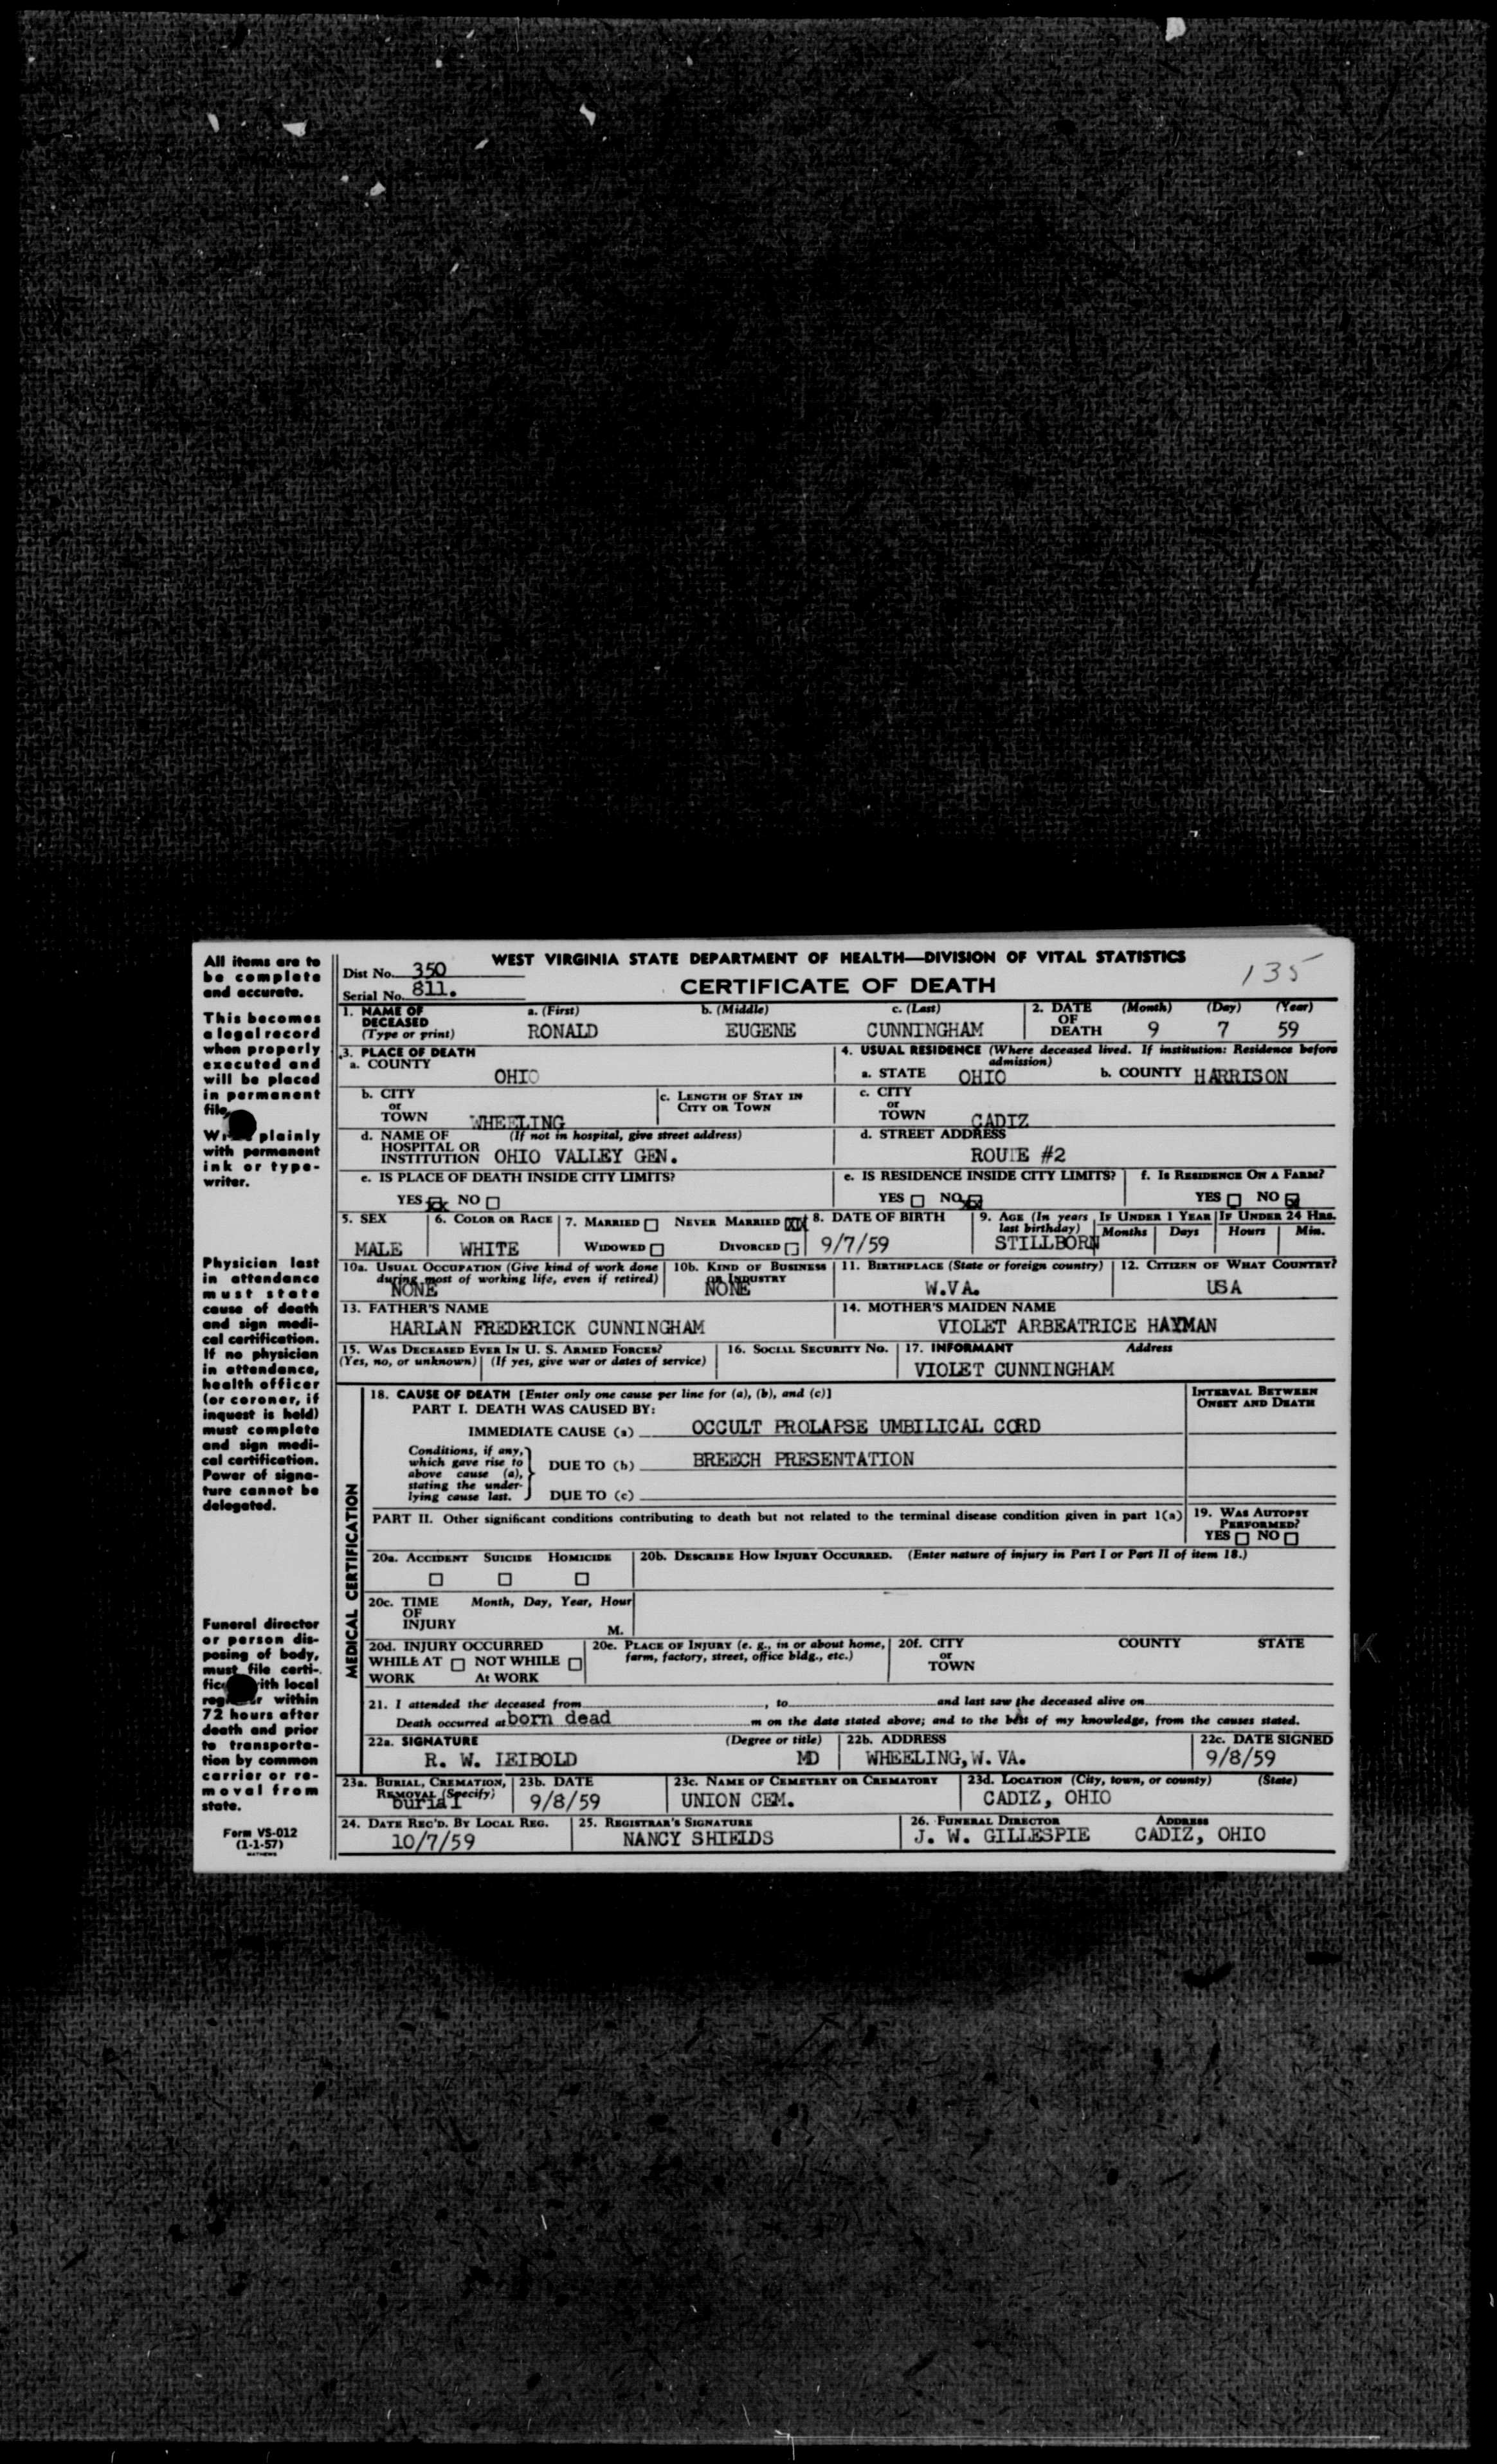 WEST VIRGINIA STATE DEPARTMENT OF HEALTH—DIVISION OF VITAL STATISTICS
Dist No. 350
Serial No. 811.
CERTIFICATE OF DEATH
135
1. NAME OF DECEASED (Type or print)
a. (First) RONALD
b. (Middle) EUGENE
c. (Last) CUNNINGHAM
2. DATE OF DEATH (Month) 9 (Day) 7 (Year) 59
3. PLACE OF DEATH
a. COUNTY OHIO
4. USUAL RESIDENCE (Where deceased lived. If institution: Residence before admission)
a. STATE OHIO b. COUNTY HARRISON
b. CITY or TOWN WHEELING
c. LENGTH OF STAY IN CITY OR TOWN
c. CITY or TOWN CADIZ
d. NAME OF HOSPITAL OR INSTITUTION (If not in hospital, give street address) OHIO VALLEY GEN.
d. STREET ADDRESS ROUTE #2
e. IS PLACE OF DEATH INSIDE CITY LIMITS?
YES X NO
e. IS RESIDENCE INSIDE CITY LIMITS?
YES NO X
f. IS RESIDENCE ON A FARM?
YES NO X
5. SEX MALE
6. COLOR OR RACE WHITE
7. MARRIED NEVER MARRIED XX
WIDOWED DIVORCED
8. DATE OF BIRTH 9/7/59
9. AGE (In years last birthday) STILLBORN
IF UNDER 1 YEAR Months Days
IF UNDER 24 HRS. Hours Min.
10a. USUAL OCCUPATION (Give kind of work done during most of working life, even if retired) NONE
10b. KIND OF BUSINESS OR INDUSTRY NONE
11. BIRTHPLACE (State or foreign country) W.VA.
12. CITIZEN OF WHAT COUNTRY? USA
13. FATHER'S NAME HARLAN FREDERICK CUNNINGHAM
14. MOTHER'S MAIDEN NAME VIOLET ARBEATRICE HAYMAN
15. WAS DECEASED EVER IN U. S. ARMED FORCES?
(Yes, no, or unknown) (If yes, give war or dates of service)
16. SOCIAL SECURITY No.
17. INFORMANT Address
VIOLET CUNNINGHAM
MEDICAL CERTIFICATION
18. CAUSE OF DEATH [Enter only one cause per line for (a), (b), and (c)]
INTERVAL BETWEEN ONSET AND DEATH
PART I. DEATH WAS CAUSED BY:
IMMEDIATE CAUSE (a) OCCULT PROLAPSE UMBILICAL CORD
Conditions, if any, which gave rise to above cause (a), stating the underlying cause last.
DUE TO (b) BREECH PRESENTATION
DUE TO (c)
PART II. Other significant conditions contributing to death but not related to the terminal disease condition given in part 1(a)
19. WAS AUTOPSY PERFORMED?
YES NO
20a. ACCIDENT SUICIDE HOMICIDE
20b. DESCRIBE HOW INJURY OCCURRED. (Enter nature of injury in Part I or Part II of item 18.)
20c. TIME OF INJURY Month, Day, Year, Hour M.
20d. INJURY OCCURRED
WHILE AT WORK NOT WHILE At WORK
20e. PLACE OF INJURY (e. g., in or about home, farm, factory, street, office bldg., etc.)
20f. CITY or TOWN COUNTY STATE
21. I attended the deceased from , to and last saw the deceased alive on
Death occurred at born dead m on the date stated above; and to the best of my knowledge, from the causes stated.
22a. SIGNATURE (Degree or title)
R. W. LEIBOLD MD
22b. ADDRESS WHEELING, W. VA.
22c. DATE SIGNED 9/8/59
23a. BURIAL, CREMATION, REMOVAL (Specify) burial
23b. DATE 9/8/59
23c. NAME OF CEMETERY OR CREMATORY UNION CEM.
23d. LOCATION (City, town, or county) (State) CADIZ, OHIO
24. DATE REC'D. BY LOCAL REG. 10/7/59
25. REGISTRAR'S SIGNATURE NANCY SHIELDS
26. FUNERAL DIRECTOR ADDRESS
J. W. GILLESPIE CADIZ, OHIO
All items are to
be complete
and accurate.
This becomes
a legal record
when properly
executed and
will be placed
in permanent
file.
plainly
with permanent
ink or type-
writer.
Physician last
in attendance
must state
cause of death
and sign medi-
cal certification.
If no physician
in attendance,
health officer
(or coroner, if
inquest is held)
must complete
and sign medi-
cal certification.
Power of signa-
ture cannot be
delegated.
Funeral director
or person dis-
posing of body,
must file certi-
with local
within
72 hours after
death and prior
to transporta-
tion by common
carrier or re-
moval from
state.
Form VS-012
(1-1-57)
K